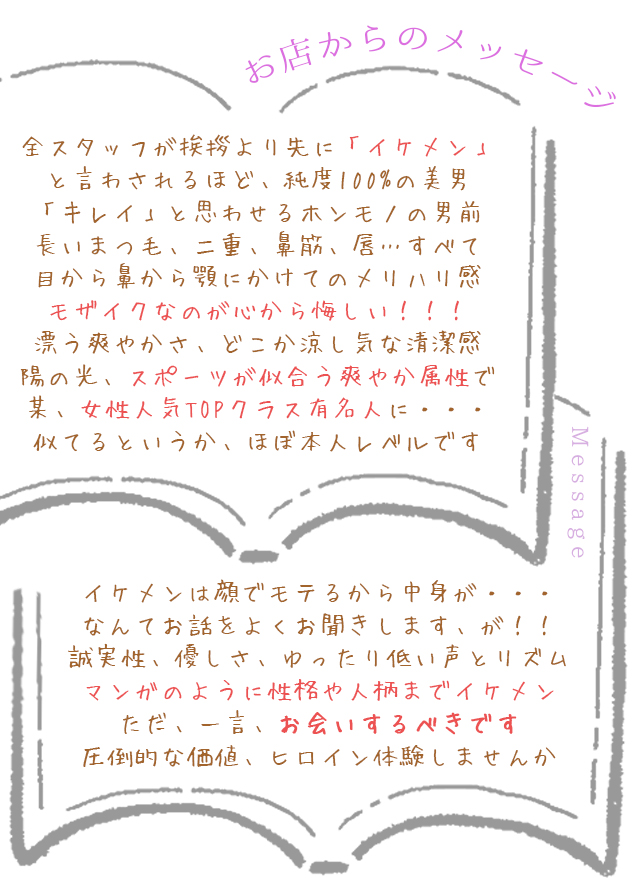 お店からのメッセージ
全スタッフが挨拶より先に「イケメン」
と言わされるほど、純度100%の美男
「キレイ」と思わせるホンモノの男前
長いまつ毛、二重、鼻筋、唇…すべて
目から鼻から顎にかけてのメリハリ感
モザイクなのが心から悔しい！！！
漂う爽やかさ、どこか涼し気な清潔感
陽の光、スポーツが似合う爽やか属性で
某、女性人気TOPクラス有名人に・・・
似てるというか、ほぼ本人レベルです
Message
イケメンは顔でモテるから中身が・・・
なんてお話をよくお聞きします、が！！
誠実性、優しさ、ゆったり低い声とリズム
マンガのように性格や人柄までイケメン
ただ、一言、お会いするべきです
圧倒的な価値、ヒロイン体験しませんか